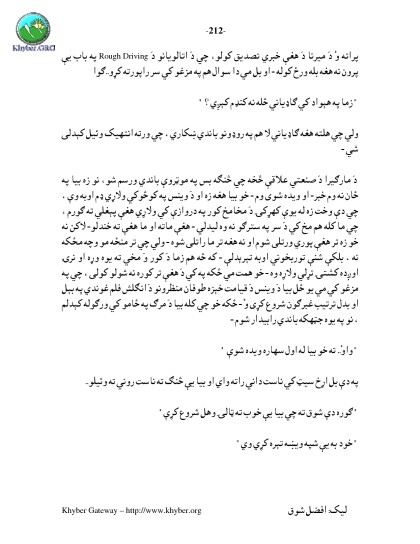 -212-
Khyber.ORG
پراته وُ دَ میرنا دَ هغې خبرې تصدیق کولو ، چې دَ اتالویانو دَ Rough Driving په باب یې
پرون نه هغه بله ورځ کوله- او بل مې دا سوال هم په مزغو کې سر راپورته کړو..ګوا
"زما په هېواد کې ګاډیانې څله نه ګنډم کیږي ؟ "
ولې چې هلته هغه ګاډیانې لا هم په روډونو باندې ښکاري ، چې ورته انتهیک وئیل کېدلی
شي-
دَ مارګېرا دَ صنعتي علاقې څخه چې څنګه بس په موټروې باندې ورسم شو ، نو زه بیا په
ځان نه وم خبر- او ویده شوی وم- خو بیا هغه زه او دَ وینس په کوڅوکې ولاړې ډم اوبه وې ،
چې دې وخت زه له یوې کهړکۍ دَ مخامخ کور په دروازې کې ولاړې هغې پېغلې ته ګورم ،
چې ما کله هم مخ کې دَ سر په سترګو نه وه لیدلې- هغې ماته او ما هغې ته خندلو- لاکن نه
خو زه تر هغې پورې ورتلی شوم او نه هغه تر ما راتلی شوه- ولې چې تر منځه مو وچه مځکه
نه ، بلکې شنې توربخونې اوبه تېرېدلې- که څه هم زما دَ کور وَ مخې ته یوه وړه او نرۍ
اوږده کشتۍ تړلې ولاړه وه- خو همت مې ځکه په کې دَ هغې تر کوره نه شولو کولی ، چې په
مزغو کې مې یو ځل بیا دَ وینس دَ قیامت خېزه طوفان منظرونو دَ انګلش فلم غوندې په بېل
او بدل ترتیب غبرګون شروع کړی وُ- ځکه خو چې کله بیا دَ مرګ په خامو کې ورګوله کېدلم
، نو په یوه جټهکه باندې رابیدار شوم-
"واوٴ.. ته خو بیا له اول سهاره ویده شوې "
په دې بل اړخ سیټ کې ناست داني راته وای او بیا یې څنګ ته ناست روني ته وئیلو..
"ګوره دې شوق ته چې بیا یې خوب ته ټالۍ وهل شروع کړې "
"خود به یې شپه ویښه تېره کړې وي "
Khyber Gateway – http://www.khyber.org
لیک: افضل شوق